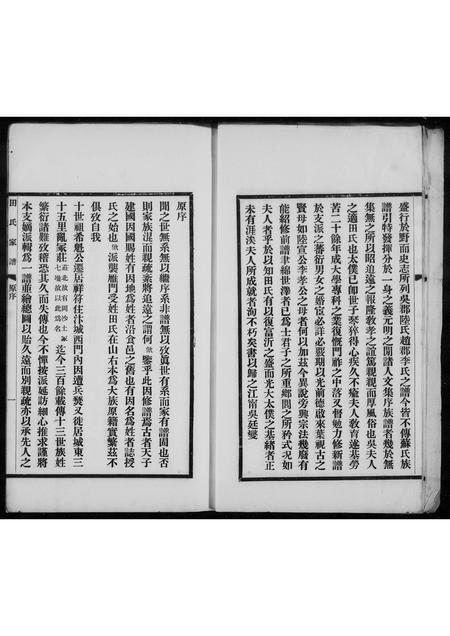 盛行於野而史志所列吳郡陸氏趙郡李氏之譜今皆不傳蘇氏族
譜引特發揮分於一身之義元明之間諸人文集序族譜者幾於無
集無之所以昭追遠之報隆敎孝之誼篤親親而厚風俗也吳夫人
之適田氏也太僕已卸世子琴猝得心疾久不瘉夫人敎育遂基勞
苦二十餘年成大學專科之業復慨門祚之中落又督勉力修新譜
於支派之蕃衍男女之婚宦必詳必覈期以光前德啟來葉視古之
賢母如陸宣公李孝公之母者何以加茲今異說旁興宗法幾廢有
能紹修前譜聿綿世澤者已爲士君子之所重鄉閭之所矜式况如
夫人者乎於以知田氏有以復富沂之盛而光大太僕之基緒者正
未有涯涘夫人所成就者洵不朽矣書以歸之江甯吳廷燮
原序
聞之世無系無以繼序系非譜無以攷眞世有系而家有譜固也否
則家族混而親疏紊將追遠之謂何鑒乎此因修譜焉古者天子
建國因國賜姓有因地爲姓者沿食邑之舊也有因名爲姓者誌授
氏之始也派襲雁門受姓田氏在山右本爲大族原籍實繁茲不
俱攷自我
十世祖希魁公遷居祥符住汴城西門內因遭兵燹又徙居城東三
十五里亂冢莊莊北故有固沙土冢七堆故以此爲名迄今三百餘歲傳十三世族姓
繁衍諸難攷稽恐其久而失傳也今不憚按派延訪細心推求謹將
本支嫡派輯爲一譜並繪總圖以貽久遠而別親疏亦以承先人之
田氏家譜
原序